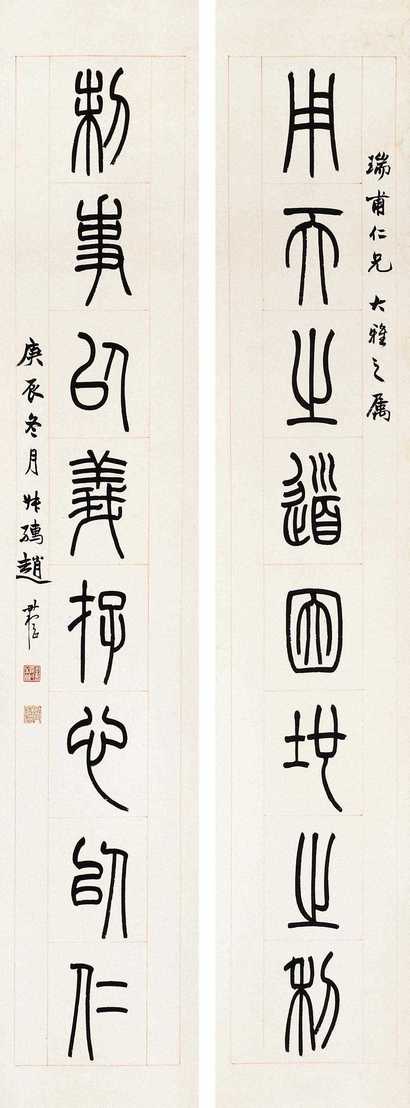 瑞甫仁兄大雅之屬
用天之道因地之利
制事以義存心以仁
庚辰冬月叔孺趙時棡